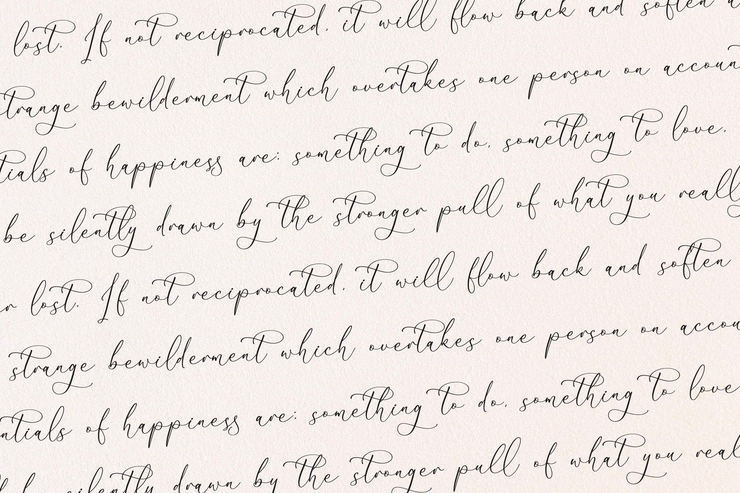 lost. If not reciprocated, it will flow back and soften a
trange bewilderment which overtakes one person on accoun
tials of happiness are: something to do, something to love,
be silently drawn by the stronger pull of what you really
r lost. If not reciprocated, it will flow back and soften
strange bewilderment which overtakes one person on accou
ntials of happiness are: something to do, something to love
silently drawn by the stronger pull of what you real